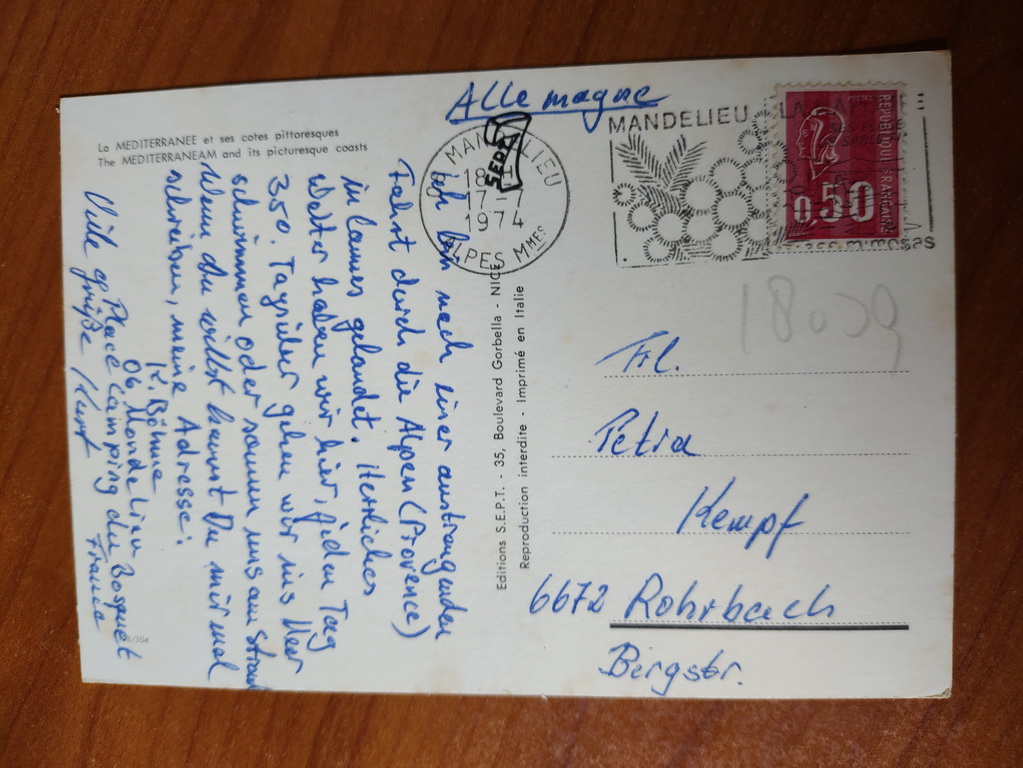 La MEDITERRANEE et ses cotes pittoresques
The MEDITERRANEAM and its picturesque coasts
Ich bin nach einer anstrengenden
Fahrt durch die Alpen (Provence)
in Cannes gelandet. Herrliches
Wetter haben wir hier, jeden Tag
350. Tagsüber gehen wir ins Meer
schwimmen oder sonnen uns am Strand
Wenn du willst kannst Du mir mal
schreiben, meine Adresse:
K. Böhme
06 Mandelieu
Place Camping du Bosquet
France
Viele Grüße / Kurt
Editions S.E.P.T. - 35, Boulevard Gorbella - NICE
Reproduction interdite - Imprimé en Italie
SEPT
Allemagne
MANDELIEU
18 H
17-7
1974
ALPES MMES
MANDELIEU LA
mimosas
REPUBLIQUE FRANÇAISE
0.50
18059
Frl.
Petra
Kempf
6672 Rohrbach
Bergstr.